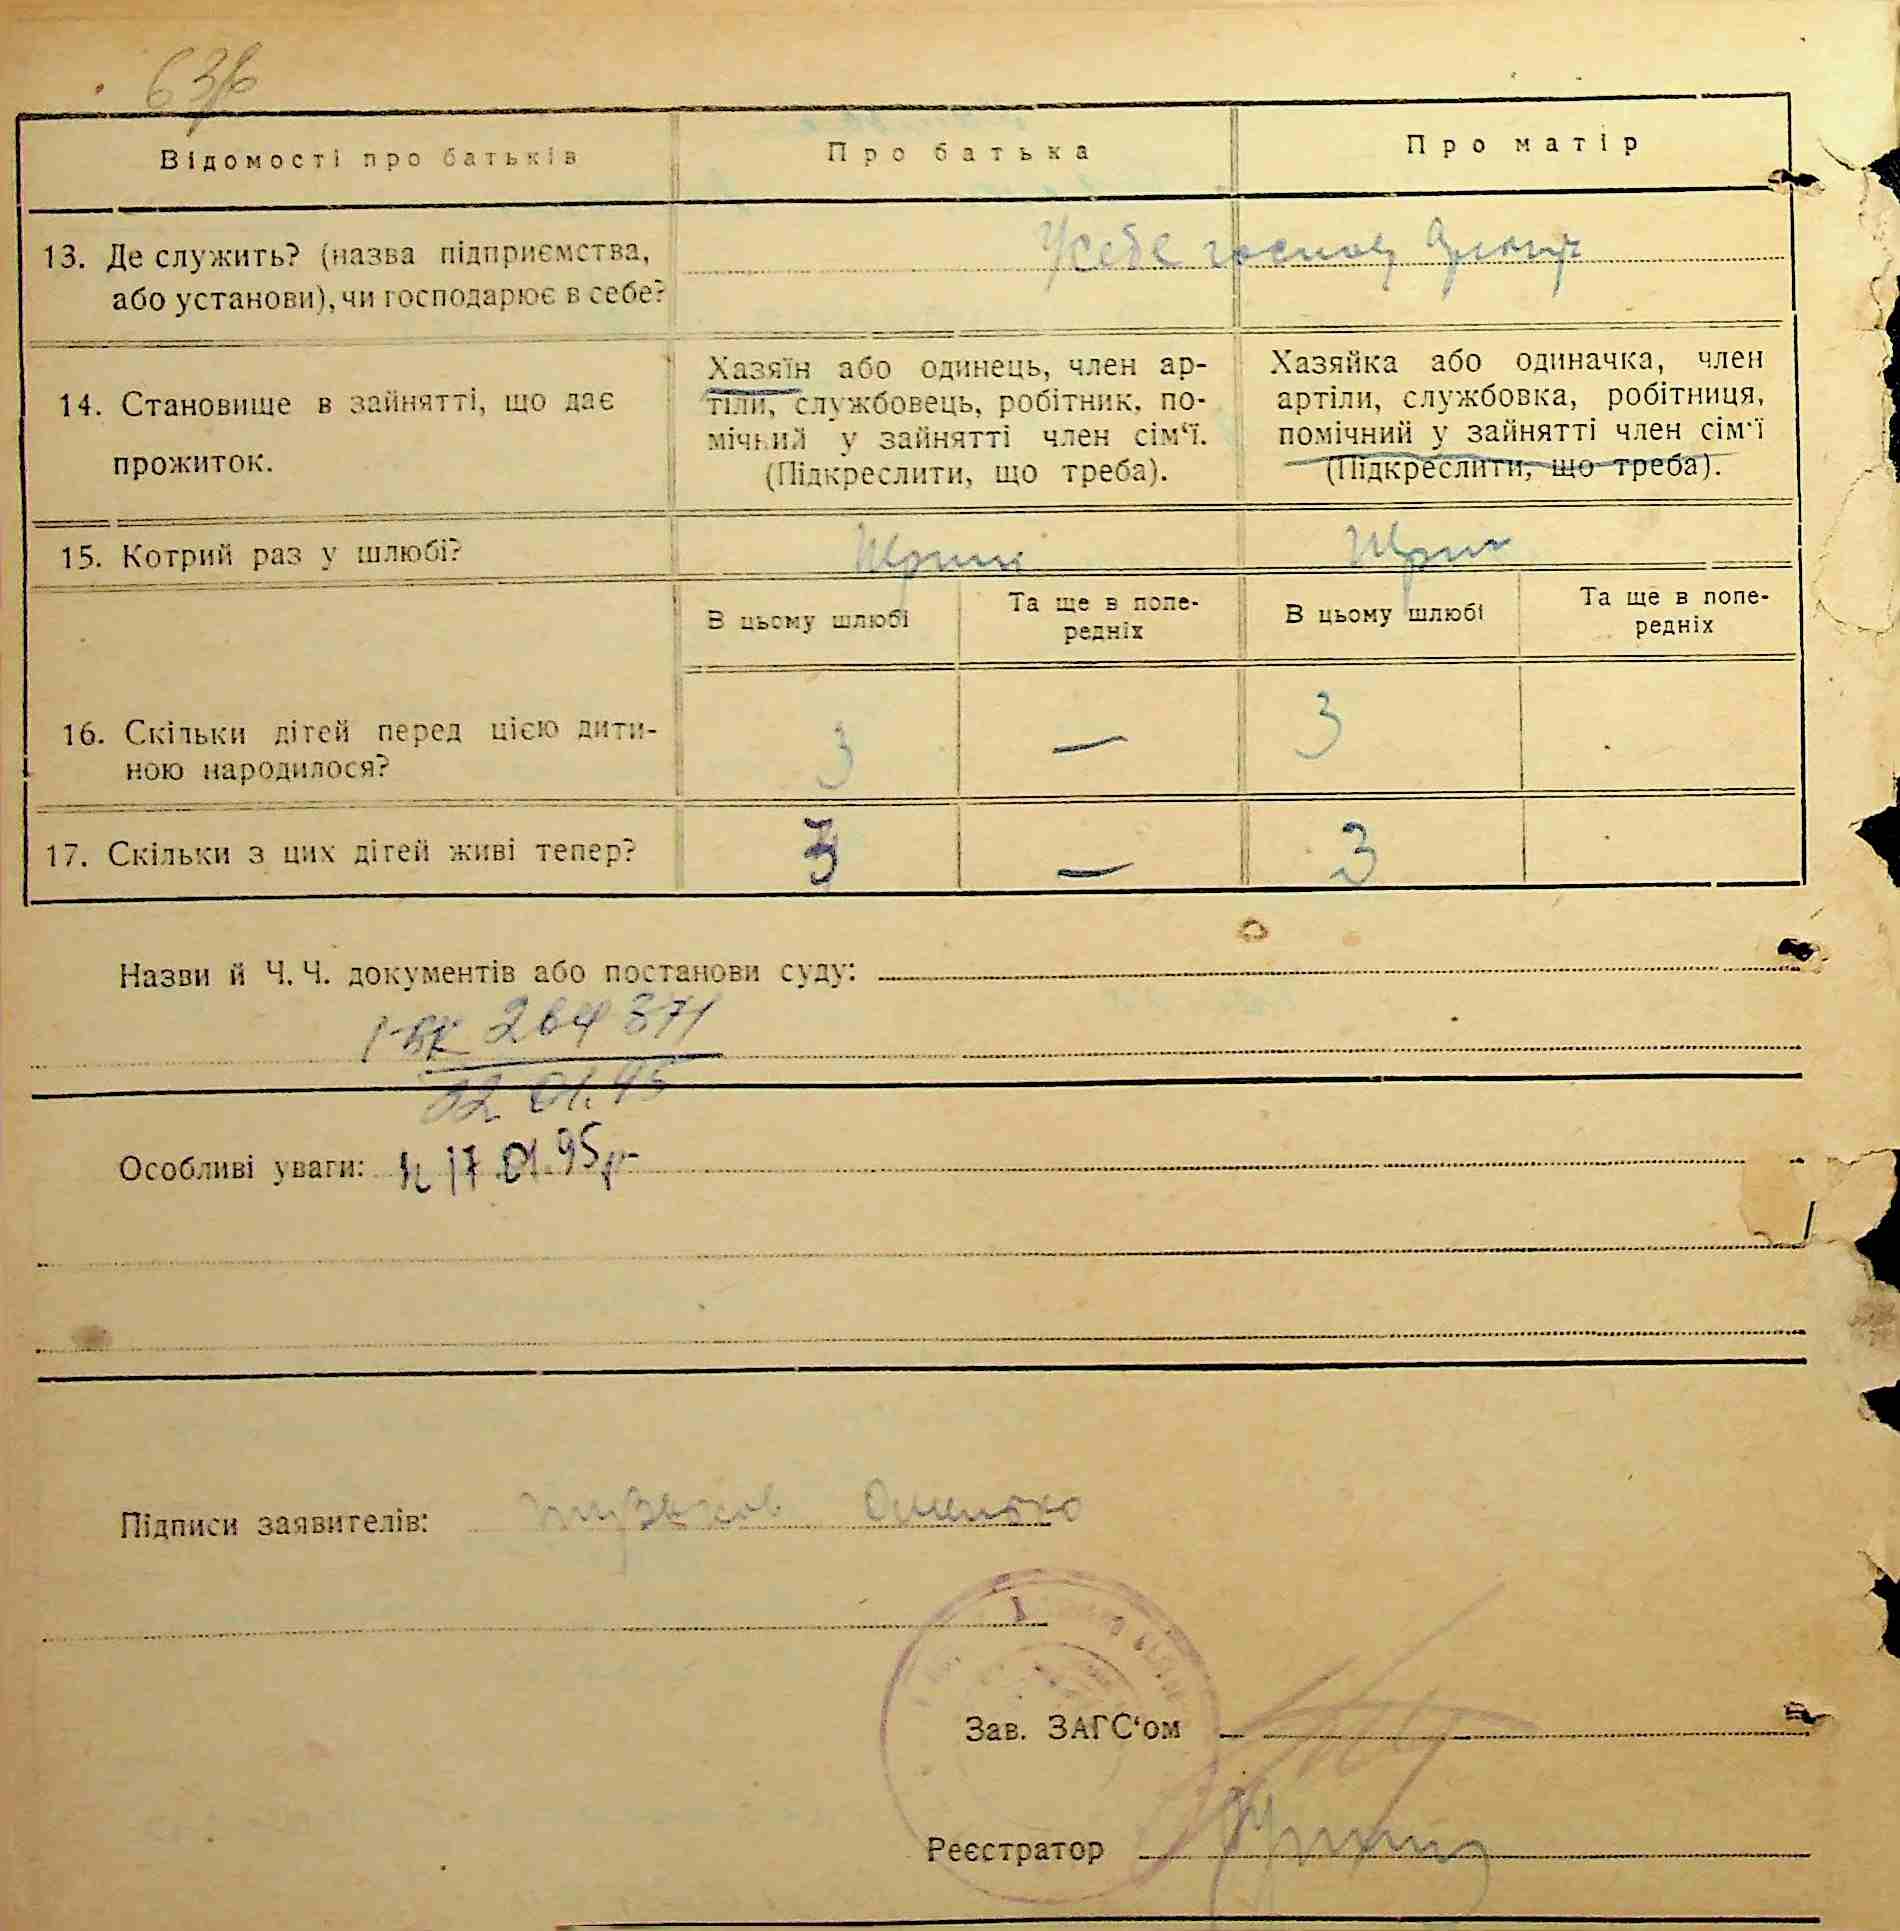 Відомості про батьків
Про батька
Про матір
13. Де служить? (назва підприємства, або установи), чи господарює в себе?
У себе господ
14. Становище в зайнятті, що дає прожиток.
Хазяїн або одинець, член ар-
тіли, службовець, робітник, по-
мічний у зайнятті член сім‘ї.
(Підкреслити, що треба).
Хазяйка або одиначка, член
артіли, службовка, робітниця,
помічний у зайнятті член сім‘ї
(Підкреслити, що треба).
15. Котрий раз у шлюбі?
В цьому шлюбі
Та ще в попе-
редніх
В цьому шлюбі
Та ще в попе-
редніх
16. Скільки дітей перед цією дити-
ною народилося?
3 — 3
17. Скільки з цих дітей живі тепер?
3 — 3
Назви й Ч. Ч. документів або постанови суду:
264371
Особливі уваги: 17.01.95р
Підписи заявителів:
Зав. ЗАГС‘ом
Реєстратор